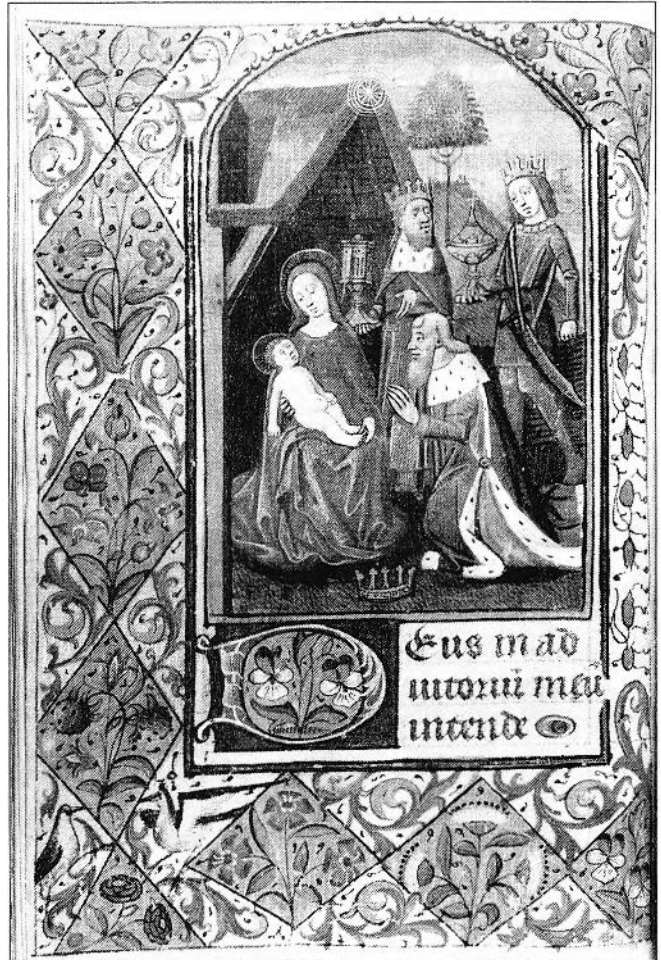 Deus in ad
iutoriū meū
intende